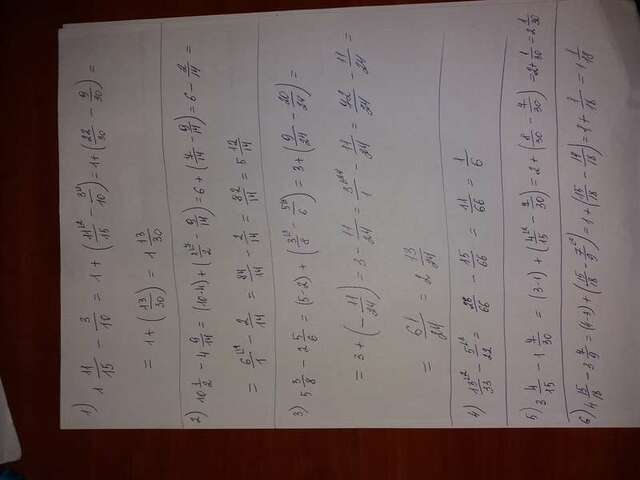 1)
1 11/15 - 3/10 = 1 + (11/15 - 3/10) = 1 + (22/30 - 9/30) =
= 1 + (13/30) = 1 13/30
2)
10 1/2 - 4 9/14 = (10-4) + (1/2 - 9/14) = 6 + (7/14 - 9/14) = 6 - 2/14 =
= 6/1 - 2/14 = 84/14 - 2/14 = 82/14 = 5 12/14
3)
5 3/8 - 2 5/6 = (5-2) + (3/8 - 5/6) = 3 + (9/24 - 20/24) =
= 3 + (- 11/24) = 3 - 11/24 = 3/1 - 11/24 = 72/24 - 11/24 =
= 61/24 = 2 13/24
4)
13/33 - 5/22 = 26/66 - 15/66 = 11/66 = 1/6
5)
3 4/15 - 1 7/30 = (3-1) + (4/15 - 7/30) = 2 + (8/30 - 7/30) = 2 + 1/30 = 2 1/30
6)
4 15/18 - 3 7/9 = (4-3) + (15/18 - 7/9) = 1 + (15/18 - 14/18) = 1 + 1/18 = 1 1/18